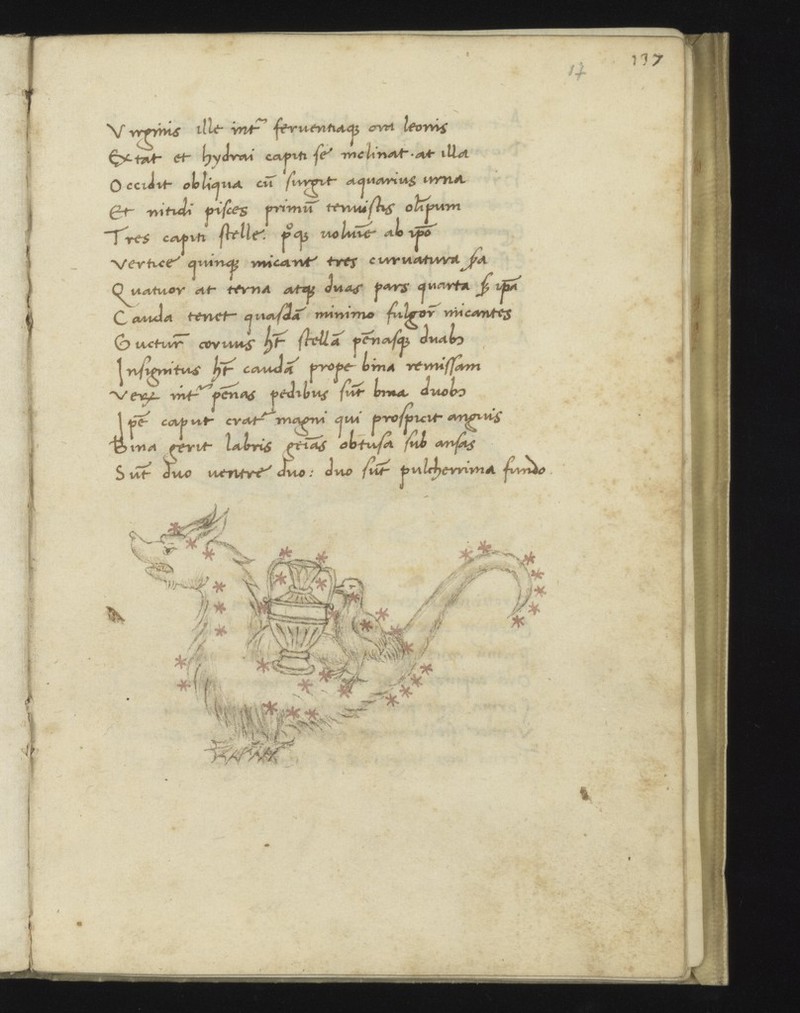 17 137
Virginis ille intʳ ferventiaqꝫ ora leonis
Extat et hydrai capiti se inclinat · at illa
Occidit obliqua cū surgit aquarius urna
Et nitidi pisces primū tenuistis olīpum
Tres capiti stelle: pꝰqꝫ volumē ab ip̄o
Vertice quinqꝫ micant tres curvatura
Quatuor at terna atqꝫ duas pars quarta ip̄a
Cauda tenet quasdā minimo fulgor̄ micantes
Guctur̄ corvus h̄t stellā pēnasqꝫ duabꝫ
Insignitus h̄t caudā prope bina remissam
intʳ pēnas pedibus sūt bina duobꝫ
Ip̄e caput cratʳ magni qui prospicit anguis
Bina gerit labris geīas obtusa sub ansas
Sūt duo ventre duo: duo sūt pulcherrima fundo.